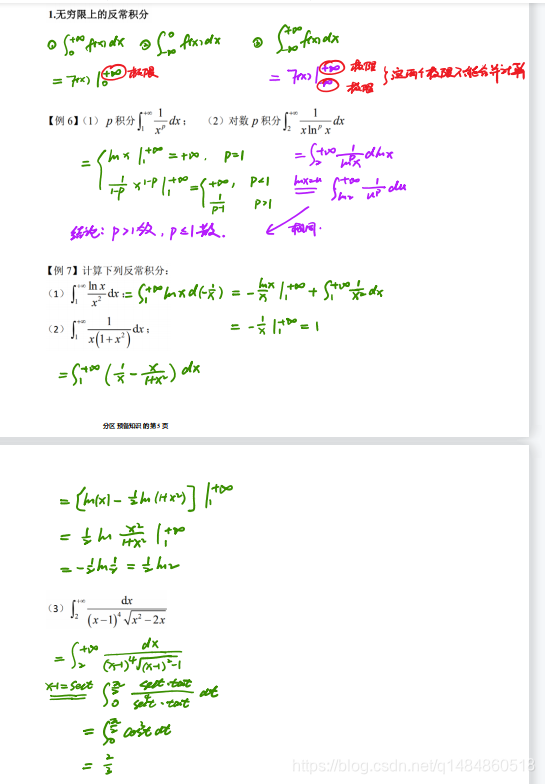 1.无穷限上的反常积分
① ∫₀^{+∞} f(x)dx ② ∫_{-∞}^0 f(x)dx ③ ∫_{-∞}^{+∞} f(x)dx
= F(x) |₀^{+∞} 极限
= F(x) |_{-∞}^{+∞} 极限 极限 } 这两个极限不能合并计算
【例 6】(1) p 积分 ∫₁^{+∞} 1/x^p dx; (2) 对数 p 积分 ∫₂^{+∞} 1/(x ln^p x) dx
= { ln x |₁^{+∞} = +∞, p=1
1/(1-p) x^{1-p} |₁^{+∞} = { +∞, p<1
1/(p-1) p>1
= ∫₂^{+∞} 1/(ln^p x) d ln x
ln x = u ∫_{ln2}^{+∞} 1/u^p du
结论: p>1收, p≤1散. 相同.
【例 7】计算下列反常积分:
(1) ∫₁^{+∞} ln x/x² dx; = ∫₁^{+∞} ln x d(-1/x) = -ln x/x |₁^{+∞} + ∫₁^{+∞} 1/x² dx
= -1/x |₁^{+∞} = 1
(2) ∫₁^{+∞} 1/(x(1+x²)) dx;
= ∫₁^{+∞} (1/x - x/(1+x²)) dx
分区 预备知识 的第 5 页
= [ln|x| - 1/2 ln(1+x²)] |₁^{+∞}
= 1/2 ln x²/(1+x²) |₁^{+∞}
= -1/2 ln 1/2 = 1/2 ln2
(3) ∫₂^{+∞} dx/((x-1)⁴√(x²-2x))
= ∫₂^{+∞} dx/((x-1)⁴√((x-1)²-1))
x-1=sect ∫₀^{π/2} sect·tant/(sec⁴t·tant) dt
= ∫₀^{π/2} cos³t dt
= 2/3
https://blog.csdn.net/q1484860518